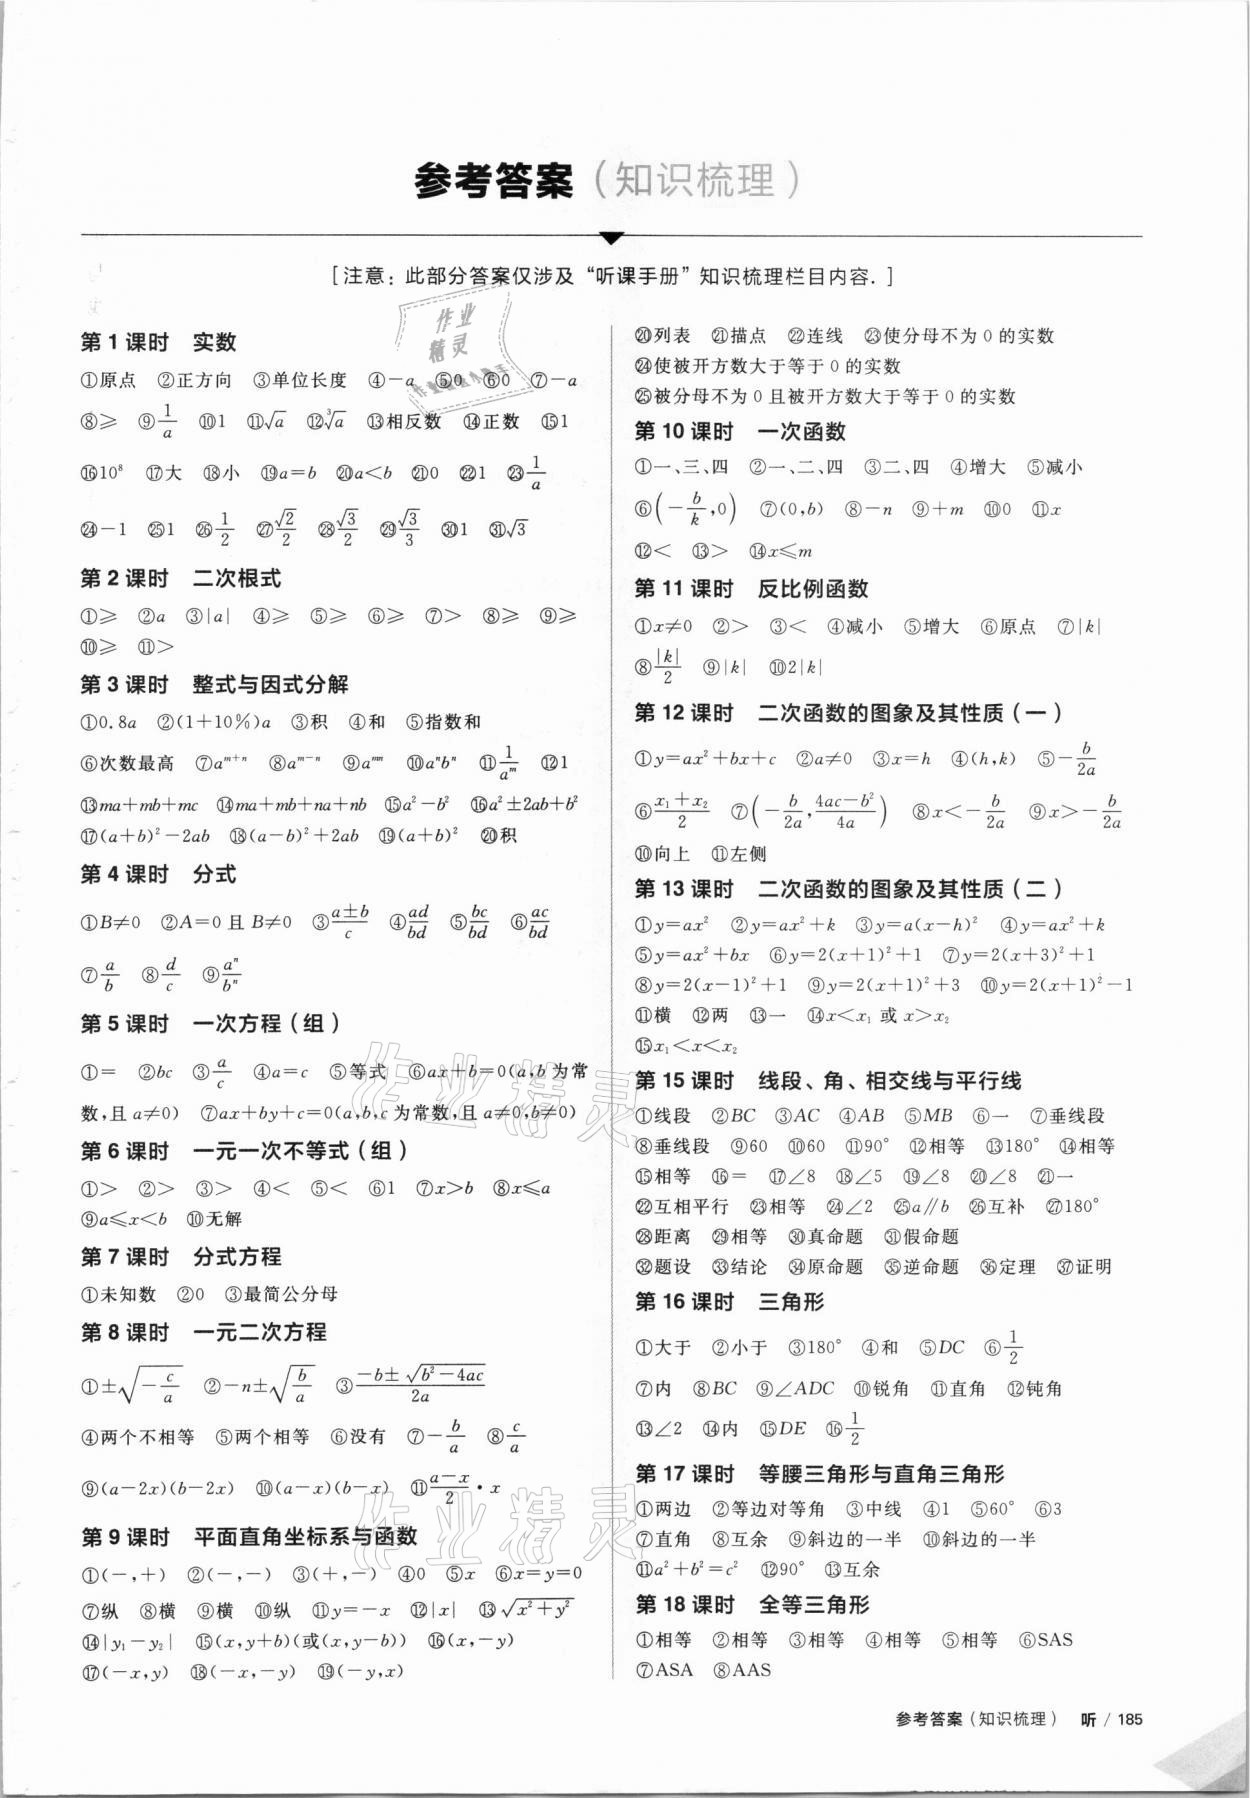 参考答案(知识梳理)
[注意:此部分答案仅涉及“听课手册”知识梳理栏目内容.]
第1课时 实数
①原点 ②正方向 ③单位长度 ④-a ⑤0 ⑥0 ⑦-a
⑧≥ ⑨1/a ⑩1 ⑪√a ⑫³√a ⑬相反数 ⑭正数 ⑮1
⑯10⁸ ⑰大 ⑱小 ⑲a=b ⑳a<b ㉑0 ㉒1 ㉓1/a
㉔-1 ㉕1 ㉖1/2 ㉗√2/2 ㉘√3/2 ㉙√3/3 ㉚1 ㉛√3
第2课时 二次根式
①≥ ②a ③|a| ④≥ ⑤≥ ⑥≥ ⑦> ⑧≥ ⑨≥
⑩≥ ⑪>
第3课时 整式与因式分解
①0.8a ②(1+10%)a ③积 ④和 ⑤指数和
⑥次数最高 ⑦aᵐ⁺ⁿ ⑧aᵐ⁻ⁿ ⑨aᵐⁿ ⑩aⁿbⁿ ⑪1/aᵐ ⑫1
⑬ma+mb+mc ⑭ma+mb+na+nb ⑮a²-b² ⑯a²±2ab+b²
⑰(a+b)²-2ab ⑱(a-b)²+2ab ⑲(a+b)² ⑳积
第4课时 分式
①B≠0 ②A=0且B≠0 ③(a±b)/c ④ad/bd ⑤bc/bd ⑥ac/bd
⑦a/b ⑧d/c ⑨aⁿ/bⁿ
第5课时 一次方程(组)
①= ②bc ③a/c ④a=c ⑤等式 ⑥ax+b=0(a,b为常
数,且a≠0) ⑦ax+by+c=0(a,b,c为常数,且a≠0,b≠0)
第6课时 一元一次不等式(组)
①> ②> ③> ④< ⑤< ⑥1 ⑦x>b ⑧x≤a
⑨a≤x<b ⑩无解
第7课时 分式方程
①未知数 ②0 ③最简公分母
第8课时 一元二次方程
①±√(-c/a) ②-n±√(b/a) ③(-b±√(b²-4ac))/2a
④两个不相等 ⑤两个相等 ⑥没有 ⑦-b/a ⑧c/a
⑨(a-2x)(b-2x) ⑩(a-x)(b-x) ⑪(a-x)/2·x
第9课时 平面直角坐标系与函数
①(-,+) ②(-,-) ③(+,-) ④0 ⑤x ⑥x=y=0
⑦纵 ⑧横 ⑨横 ⑩纵 ⑪y=-x ⑫|x| ⑬√(x²+y²)
⑭|y₁-y₂| ⑮(x,y+b)(或(x,y-b)) ⑯(x,-y)
⑰(-x,y) ⑱(-x,-y) ⑲(-y,x)
⑳列表 ㉑描点 ㉒连线 ㉓使分母不为0的实数
㉔使被开方数大于等于0的实数
㉕被分母不为0且被开方数大于等于0的实数
第10课时 一次函数
①一、三、四 ②一、二、四 ③二、四 ④增大 ⑤减小
⑥(-b/k,0) ⑦(0,b) ⑧-n ⑨+m ⑩0 ⑪x
⑫< ⑬> ⑭x≤m
第11课时 反比例函数
①x≠0 ②> ③< ④减小 ⑤增大 ⑥原点 ⑦|k|
⑧|k|/2 ⑨|k| ⑩2|k|
第12课时 二次函数的图象及其性质(一)
①y=ax²+bx+c ②a≠0 ③x=h ④(h,k) ⑤-b/2a
⑥(x₁+x₂)/2 ⑦(-b/2a,(4ac-b²)/4a) ⑧x<-b/2a ⑨x>-b/2a
⑩向上 ⑪左侧
第13课时 二次函数的图象及其性质(二)
①y=ax² ②y=ax²+k ③y=a(x-h)² ④y=ax²+k
⑤y=ax²+bx ⑥y=2(x+1)²+1 ⑦y=2(x+3)²+1
⑧y=2(x-1)²+1 ⑨y=2(x+1)²+3 ⑩y=2(x+1)²-1
⑪横 ⑫两 ⑬一 ⑭x<x₁或x>x₂
⑮x₁<x<x₂
第15课时 线段、角、相交线与平行线
①线段 ②BC ③AC ④AB ⑤MB ⑥一 ⑦垂线段
⑧垂线段 ⑨60 ⑩60 ⑪90° ⑫相等 ⑬180° ⑭相等
⑮相等 ⑯= ⑰∠8 ⑱∠5 ⑲∠8 ⑳∠8 ㉑一
㉒互相平行 ㉓相等 ㉔∠2 ㉕a∥b ㉖互补 ㉗180°
㉘距离 ㉙相等 ㉚真命题 ㉛假命题
㉜题设 ㉝结论 ㉞原命题 ㉟逆命题 ㊱定理 ㊲证明
第16课时 三角形
①大于 ②小于 ③180° ④和 ⑤DC ⑥1/2
⑦内 ⑧BC ⑨∠ADC ⑩锐角 ⑪直角 ⑫钝角
⑬∠2 ⑭内 ⑮DE ⑯1/2
第17课时 等腰三角形与直角三角形
①两边 ②等边对等角 ③中线 ④1 ⑤60° ⑥3
⑦直角 ⑧互余 ⑨斜边的一半 ⑩斜边的一半
⑪a²+b²=c² ⑫90° ⑬互余
第18课时 全等三角形
①相等 ②相等 ③相等 ④相等 ⑤相等 ⑥SAS
⑦ASA ⑧AAS
参考答案(知识梳理) 听 / 185
作业
精灵
作业精灵
作业精灵